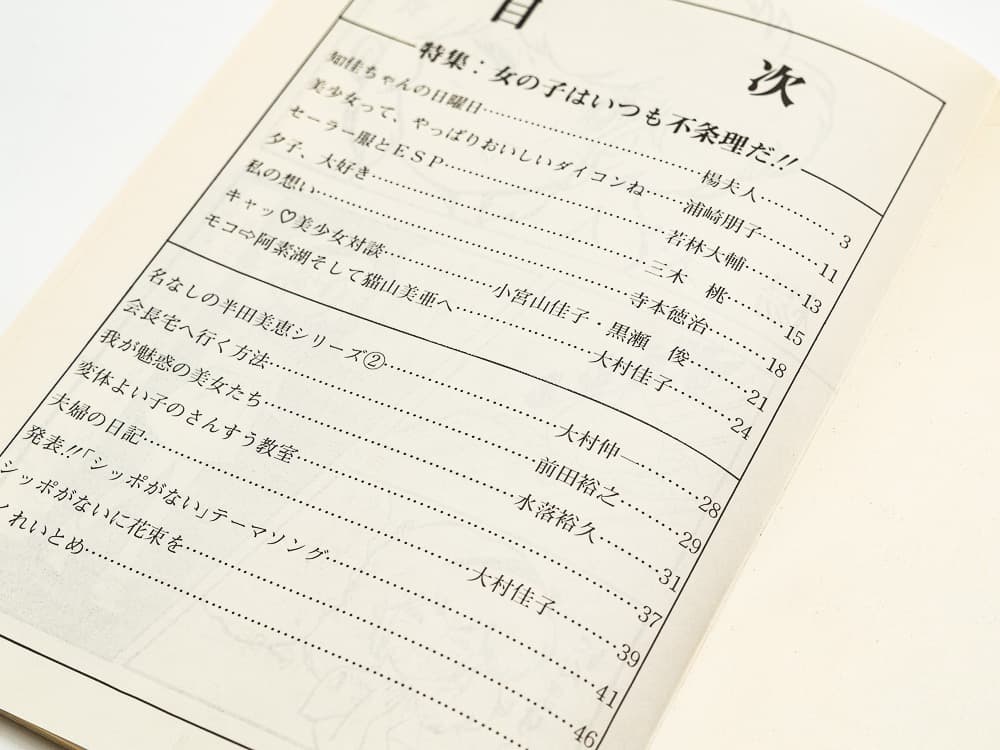 目次
特集：女の子はいつも不条理だ!!
知佳ちゃんの日曜日……楊夫人……3
美少女って、やっぱりおいしいダイコンね……浦崎朋子……11
セーラー服とＥＳＰ……若林大輔……13
夕子、大好き……三木　桃……15
私の想い……寺本徳治……18
キャッ♡美少女対談……小宮山佳子・黒瀬　俊……21
モコ⇨阿素湖そして猫山美亜へ……大村佳子……24
名なしの半田美恵シリーズ②……大村伸一……28
会長宅へ行く方法……前田裕之……29
我が魅惑の美女たち……水落裕久……31
変体よい子のさんすう教室……37
夫婦の日記……大村佳子……39
発表!!「シッポがない」テーマソング……41
シッポがないに花束を……46
れいとめ……